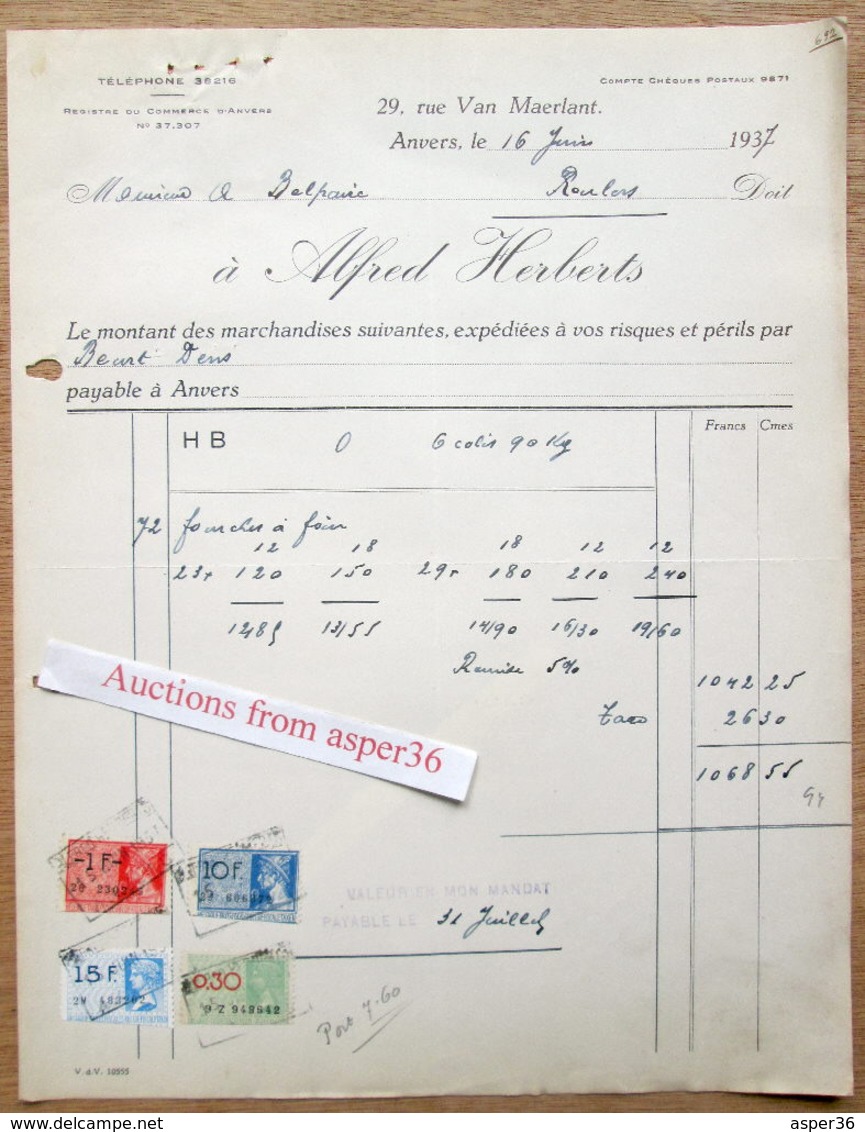 692
TÉLÉPHONE 38216
COMPTE CHÈQUES POSTAUX 9871
REGISTRE DU COMMERCE D'ANVERS
No 37.307
29, rue Van Maerlant.
Anvers, le 16 Juin 1937
Monsieur A Belpaire Roulers Doit
à Alfred Herberts
Le montant des marchandises suivantes, expédiées à vos risques et périls par
Beurt Dens
payable à Anvers
Francs Cmes
H B 0 6 colis 90 Kg
72 fourches à foin
12 18 18 12 12
23r 120 150 29r 180 210 240
1285 13/55 14/90 16/30 19/60
Remise 5% 1042 25
Taxe 26 30
1068 55
Auctions from asper36
-1 F-
10 F.
VALEUR EN MON MANDAT
PAYABLE LE 31 Juillet
15 F.
0.30
9 Z 948642
Port 7.60
V. d. V. 10555
asper36